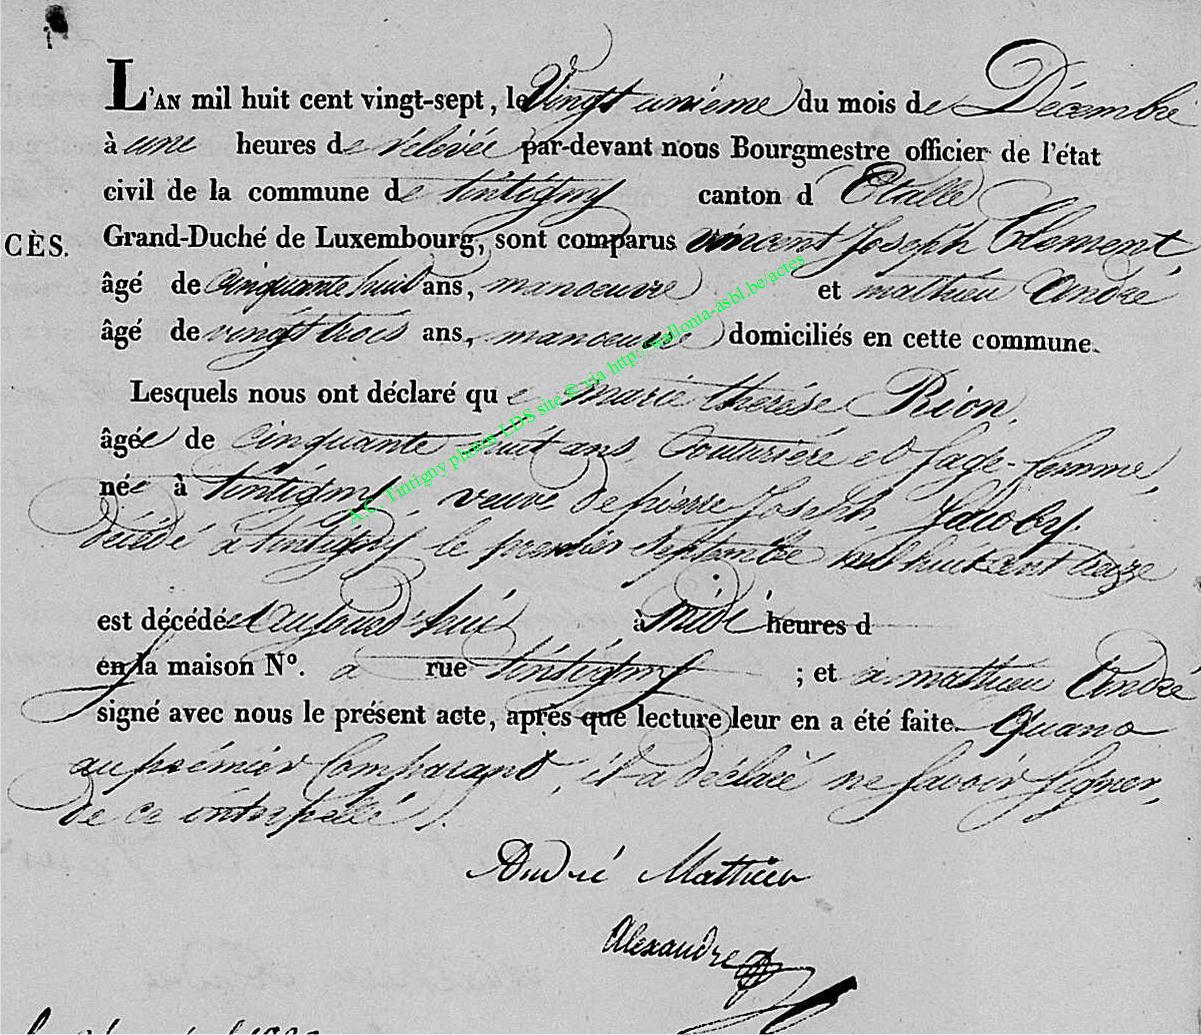 L'AN mil huit cent vingt-sept, le Vingt unième du mois de Décembre
à une heures de rélévée par-devant nous Bourgmestre officier de l'état
civil de la commune de tintigny canton d'Etalle
CÈS. Grand-Duché de Luxembourg, sont comparus vincent Joseph Clement,
âgé de Cinquante huit ans, manoeuvre et mathieu André
âgé de vingt trois ans, manoeuvre domiciliés en cette commune.
Lesquels nous ont déclaré que marie thérèse Rion,
âgée de cinquante huit ans Couturière et sage-femme,
née à tintigny, veuve de pierre Joseph Jacoby,
décédé à tintigny le premier Septembre mil huit cent treize
est décédée aujourd'hui à midi heures d
en la maison N°. a rue tintigny ; et a mathieu André
signé avec nous le présent acte, après que lecture leur en a été faite. Quand
au prémier Comparant, il a déclaré ne savoir signer,
de ce interpellé.
André Mathieu
Alexandre
A.C. Tintigny photos LDS site © via http://wallonia-asbl.be/actes